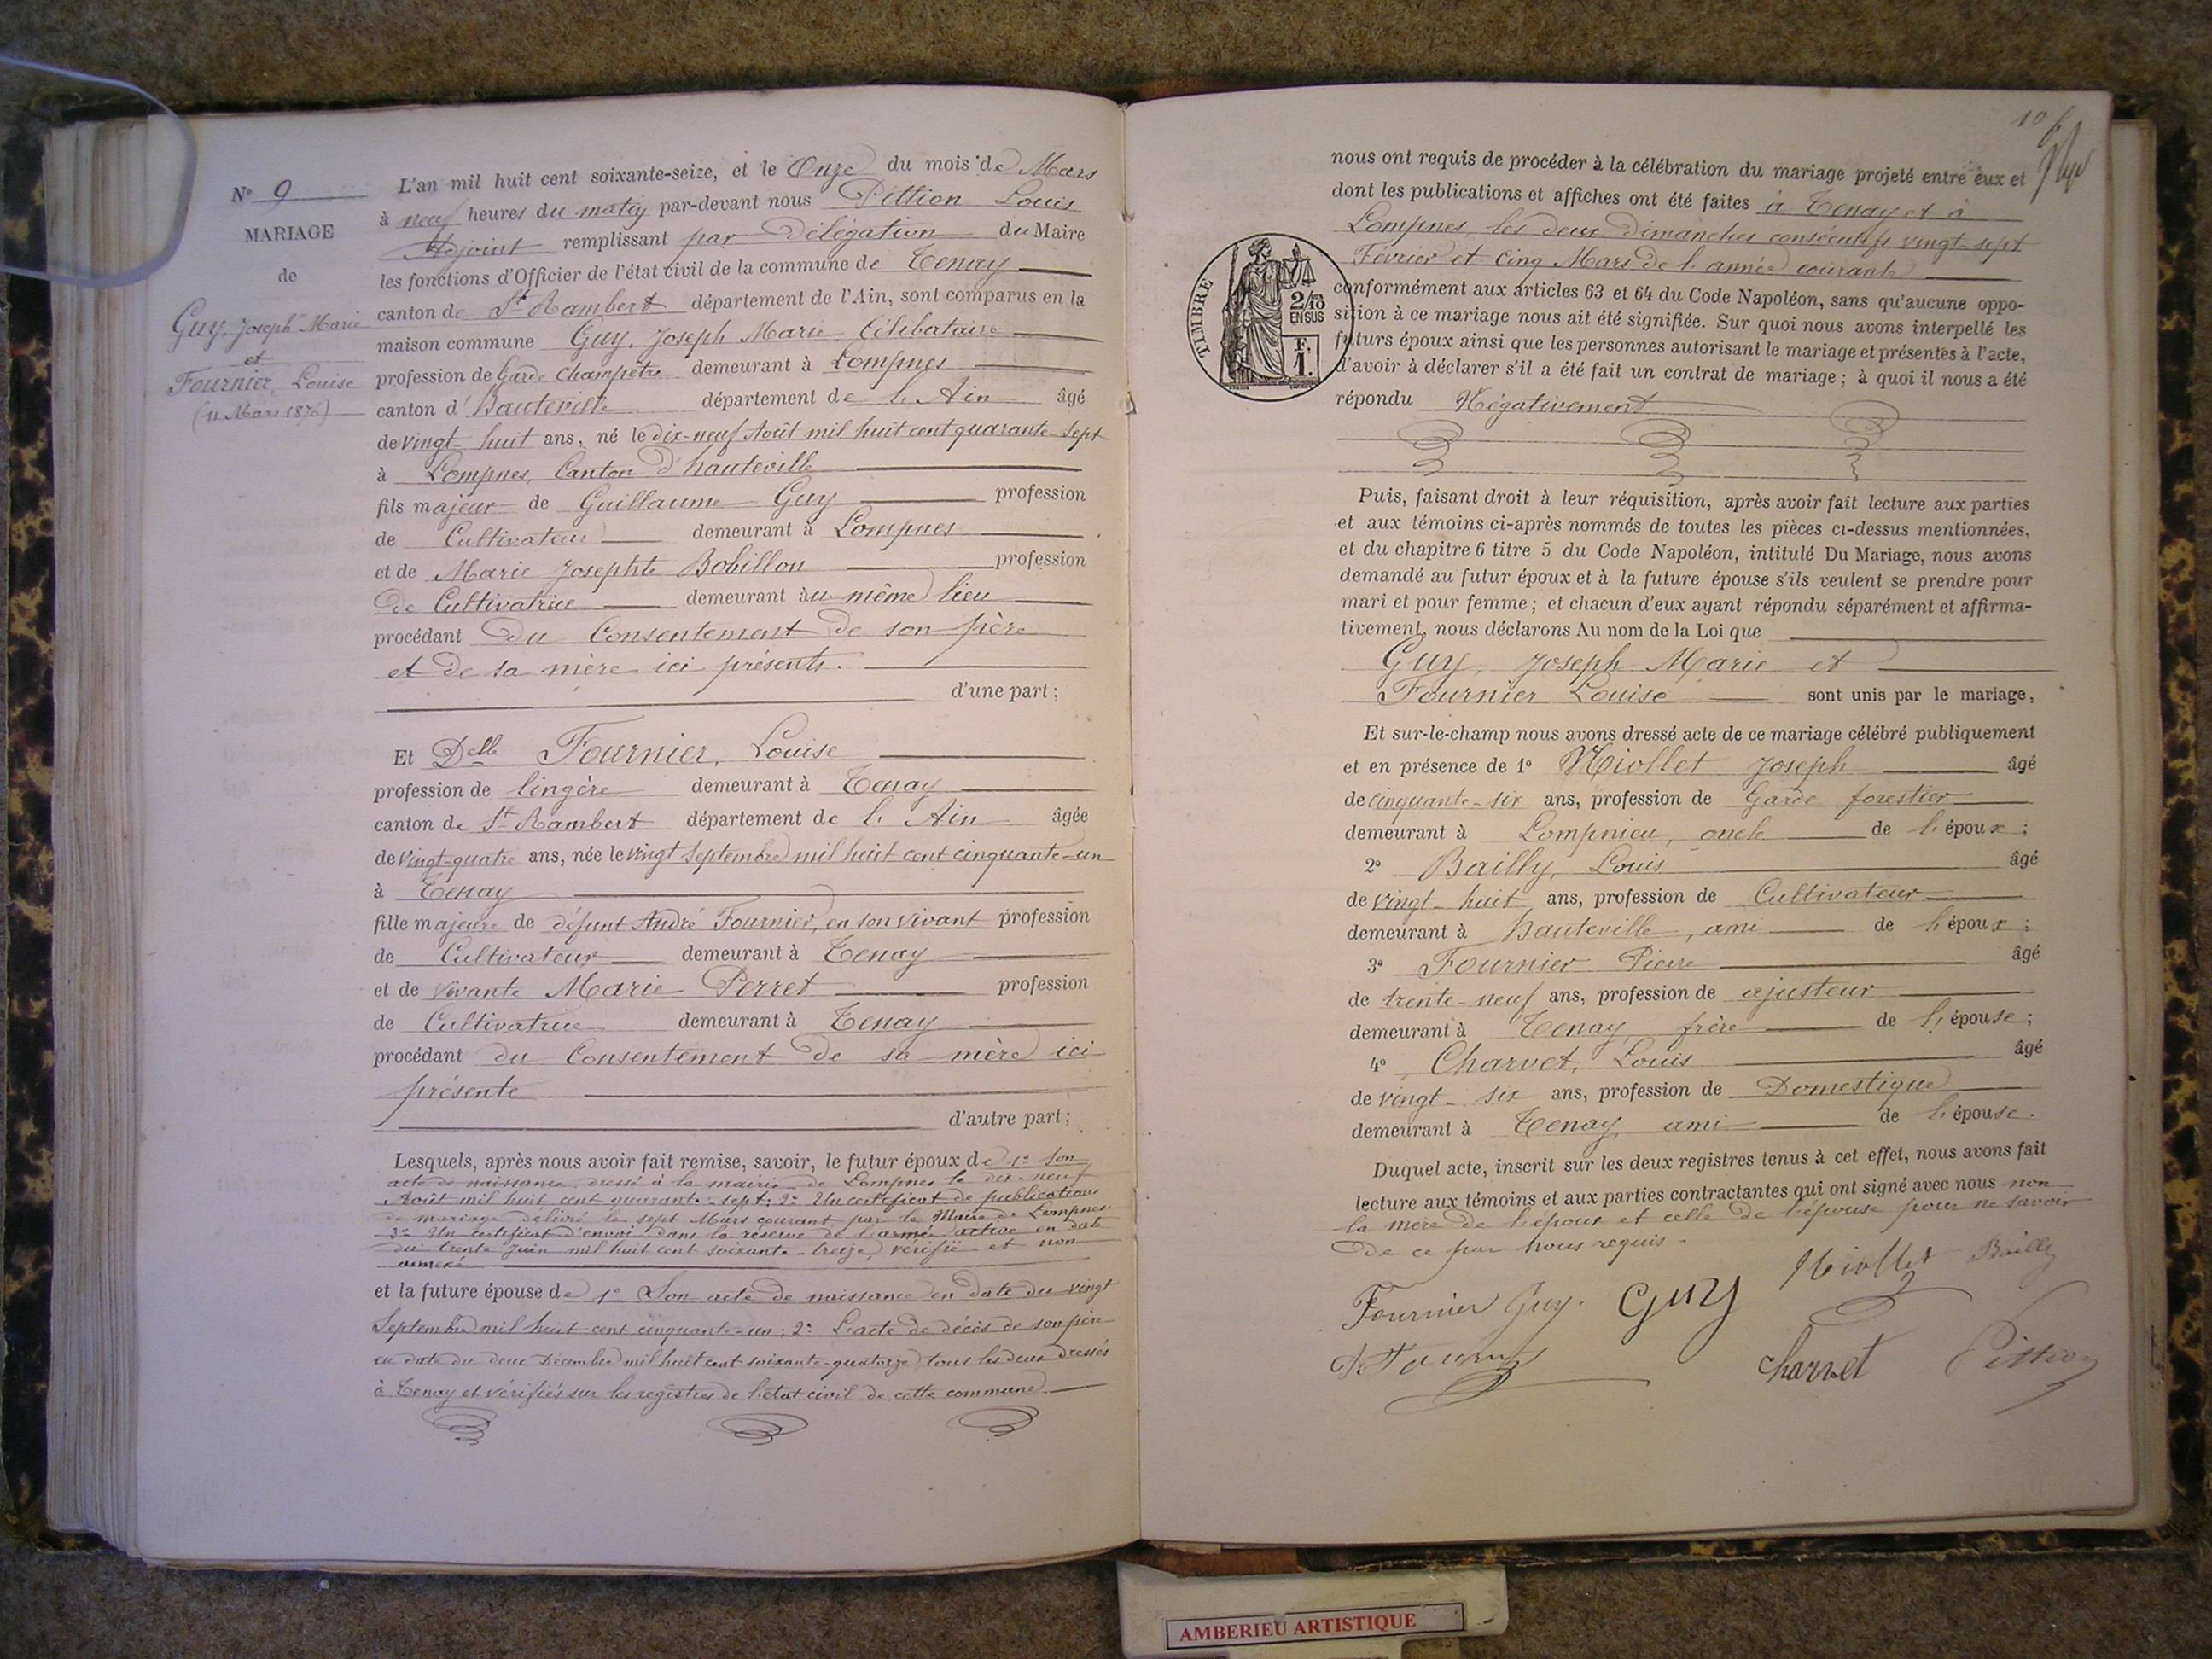 N° 9
MARIAGE
de
Guy, Joseph Marie
et
Fournier, Louise
(11 Mars 1876)
L'an mil huit cent soixante-seize, et le Onze du mois de Mars
à neuf heures du matin par-devant nous Pittion Louis
Adjoint remplissant par délégation du Maire
les fonctions d'Officier de l'état civil de la commune de Tenay
canton de St Rambert département de l'Ain, sont comparus en la
maison commune Guy, Joseph Marie Célibataire
profession de Garde Champêtre demeurant à Lompnes
canton d'Hauteville département de l'Ain âgé
de vingt-huit ans, né le dix-neuf Août mil huit cent quarante-sept
à Lompnes, Canton d'hauteville
fils majeur de Guillaume Guy profession
de Cultivateur demeurant à Lompnes
et de Marie Josephte Bobillon profession
de Cultivatrice demeurant au même lieu
procédant du Consentement de son père
et de sa mère ici présents.
d'une part;
Et Delle Fournier, Louise
profession de lingère demeurant à Tenay
canton de St Rambert département de l'Ain âgée
de vingt-quatre ans, née le vingt Septembre mil huit cent cinquante-un
à Tenay
fille majeure de défunt André Fournier, en son vivant profession
de Cultivateur demeurant à Tenay
et de vivante Marie Perret profession
de Cultivatrice demeurant à Tenay
procédant du Consentement de sa mère ici
présente
d'autre part;
Lesquels, après nous avoir fait remise, savoir, le futur époux de 1° Son
acte de naissance dressé à la mairie de Lompnes le dix-neuf
Août mil huit cent quarante-sept; 2° Un certificat de publications
de mariage délivré le sept Mars courant par le Maire de Lompnes
3° Un certificat d'envoi dans la réserve de l'armée active en date
du trente Juin mil huit cent soixante-treize, vérifié et non
annexé
et la future épouse de 1° Son acte de naissance en date du vingt
Septembre mil huit cent cinquante-un; 2° L'acte de décès de son père
en date du deux Décembre mil huit cent soixante-quatorze, tous les deux dressés
à Tenay et vérifiés sur les registres de l'état civil de cette commune.
10
nous ont requis de procéder à la célébration du mariage projeté entre eux et
dont les publications et affiches ont été faites à Tenay et à
Lompnes, les deux dimanches consécutifs vingt-sept
Février et cinq Mars de l'année courante
conformément aux articles 63 et 64 du Code Napoléon, sans qu'aucune oppo-
sition à ce mariage nous ait été signifiée. Sur quoi nous avons interpellé les
futurs époux ainsi que les personnes autorisant le mariage et présentes à l'acte,
d'avoir à déclarer s'il a été fait un contrat de mariage; à quoi il nous a été
répondu Négativement
TIMBRE
2/10
EN SUS
F.
1.
Puis, faisant droit à leur réquisition, après avoir fait lecture aux parties
et aux témoins ci-après nommés de toutes les pièces ci-dessus mentionnées,
et du chapitre 6 titre 5 du Code Napoléon, intitulé Du Mariage, nous avons
demandé au futur époux et à la future épouse s'ils veulent se prendre pour
mari et pour femme; et chacun d'eux ayant répondu séparément et affirma-
tivement, nous déclarons Au nom de la Loi que
Guy, Joseph Marie et
Fournier Louise sont unis par le mariage,
Et sur-le-champ nous avons dressé acte de ce mariage célébré publiquement
et en présence de 1° Niollet Joseph âgé
de cinquante-six ans, profession de Garde forestier
demeurant à Lompnieu, oncle de l'époux;
2° Bailly, Louis âgé
de vingt-huit ans, profession de Cultivateur
demeurant à Hauteville, ami de l'époux;
3° Fournier Pierre âgé
de trente-neuf ans, profession de ajusteur
demeurant à Tenay, frère de l'épouse;
4° Charvet, Louis âgé
de vingt-six ans, profession de Domestique
demeurant à Tenay, ami de l'épouse.
Duquel acte, inscrit sur les deux registres tenus à cet effet, nous avons fait
lecture aux témoins et aux parties contractantes qui ont signé avec nous non
la mère de l'époux et celle de l'épouse pour ne savoir
de ce par nous requis.
Niollet Bailly
Fournier Guy. Guy
Charvet Pittion
AMBERIEU ARTISTIQUE